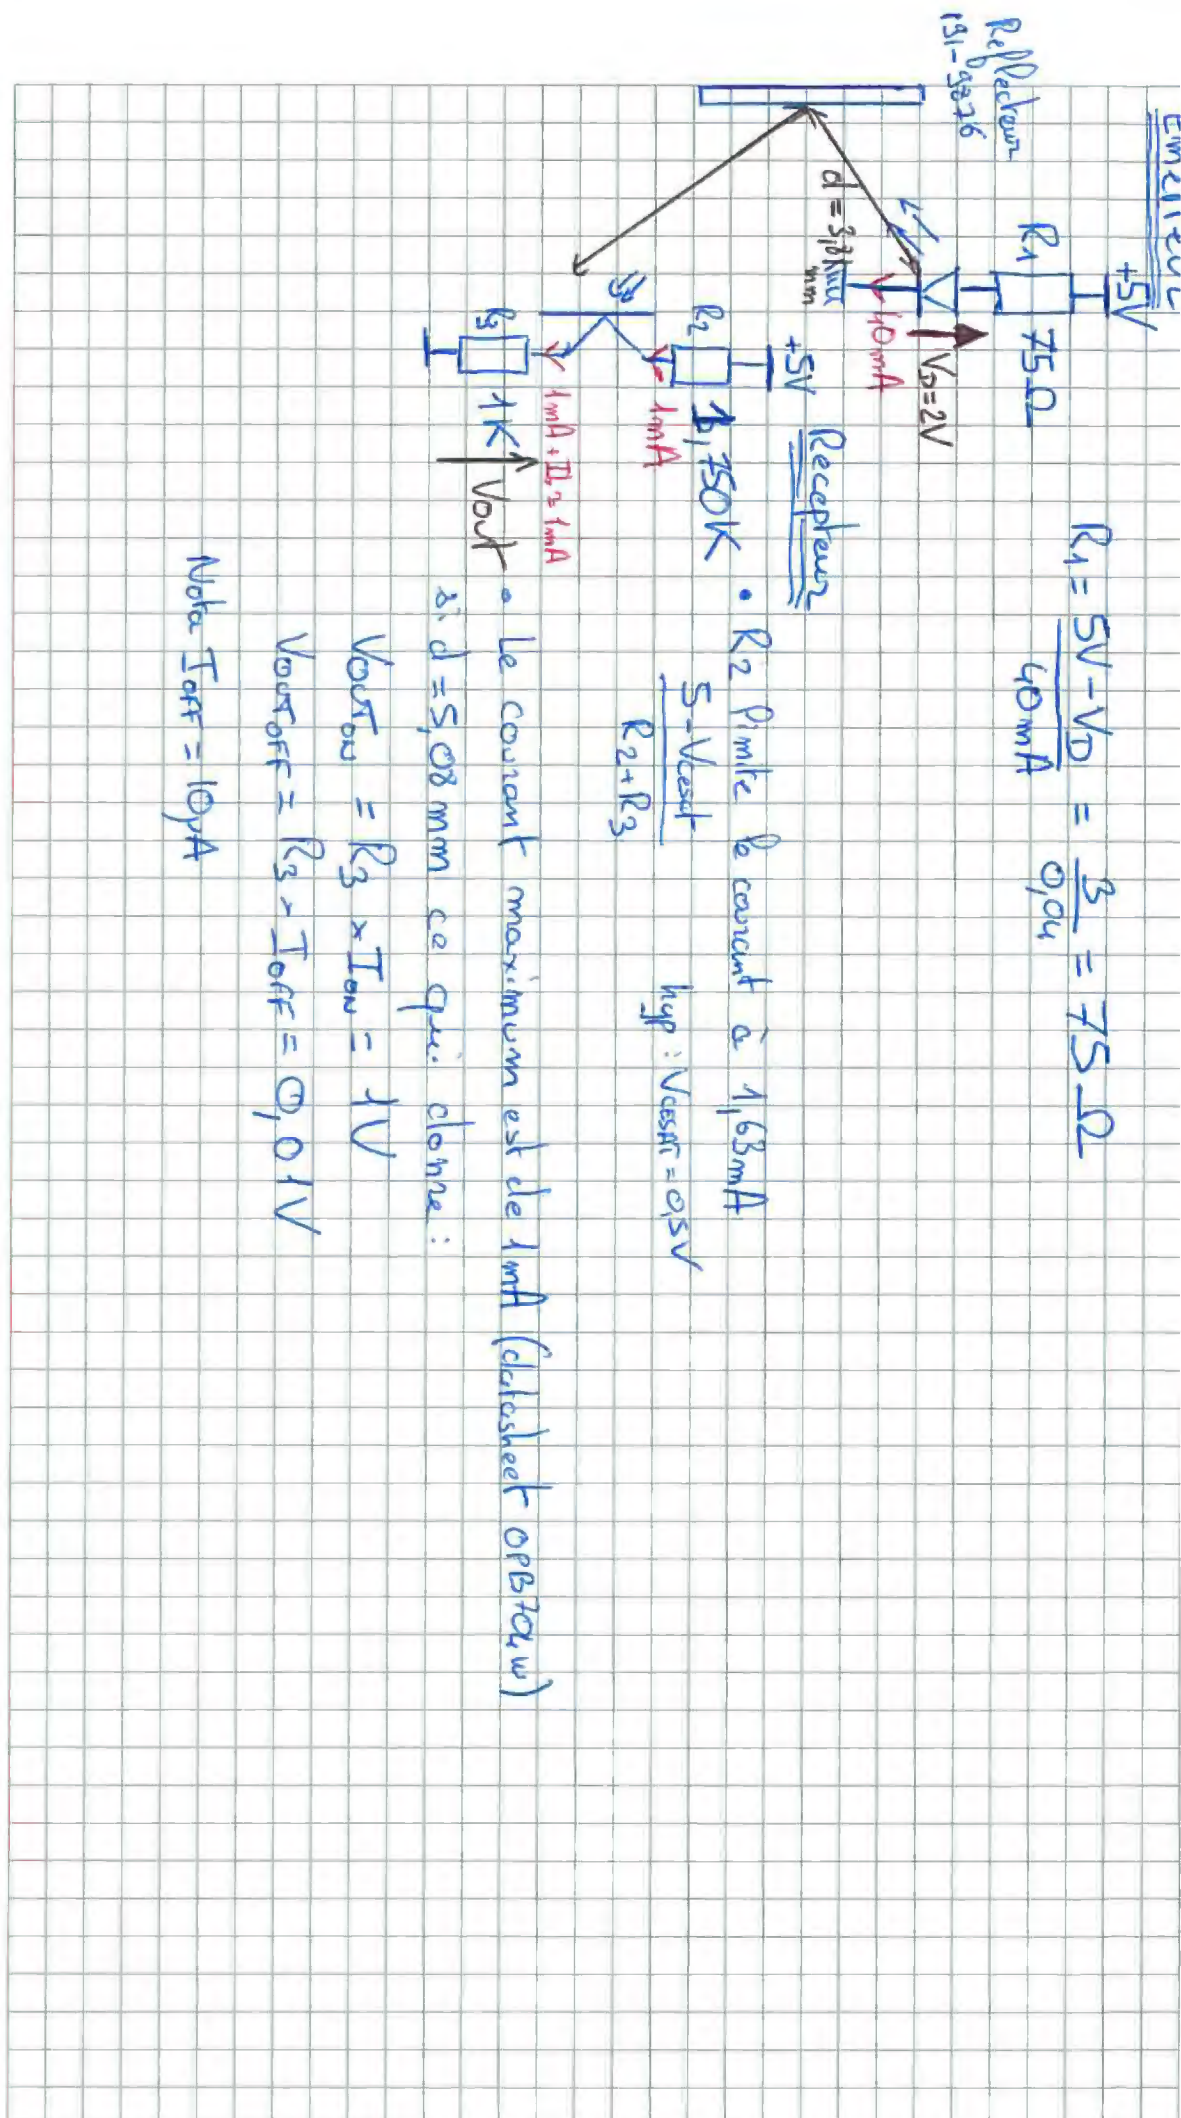 Emetteur
+5V
R1 75Ω
VD=2V
40mA
Reflecteur
191-9876
mm
R1 = 5V-VD / 40mA = 3 / 0,04 = 75Ω
Recepteur
+5V
R2 1,750K
1mA
1mA + II ≈ 1mA
R3 1K
Vout
• R2 limite le courant à 1,63mA
5-Vcesat / R2+R3
hyp : VCESAT = 0,5V
• Le courant maximum est de 1mA (datasheet OPB704w)
si d = 5,08mm ce qui donne :
VOUTON = R3 × ION = 1V
VOUTOFF = R3 × IOFF = 0,01V
Nota IOFF = 10µA